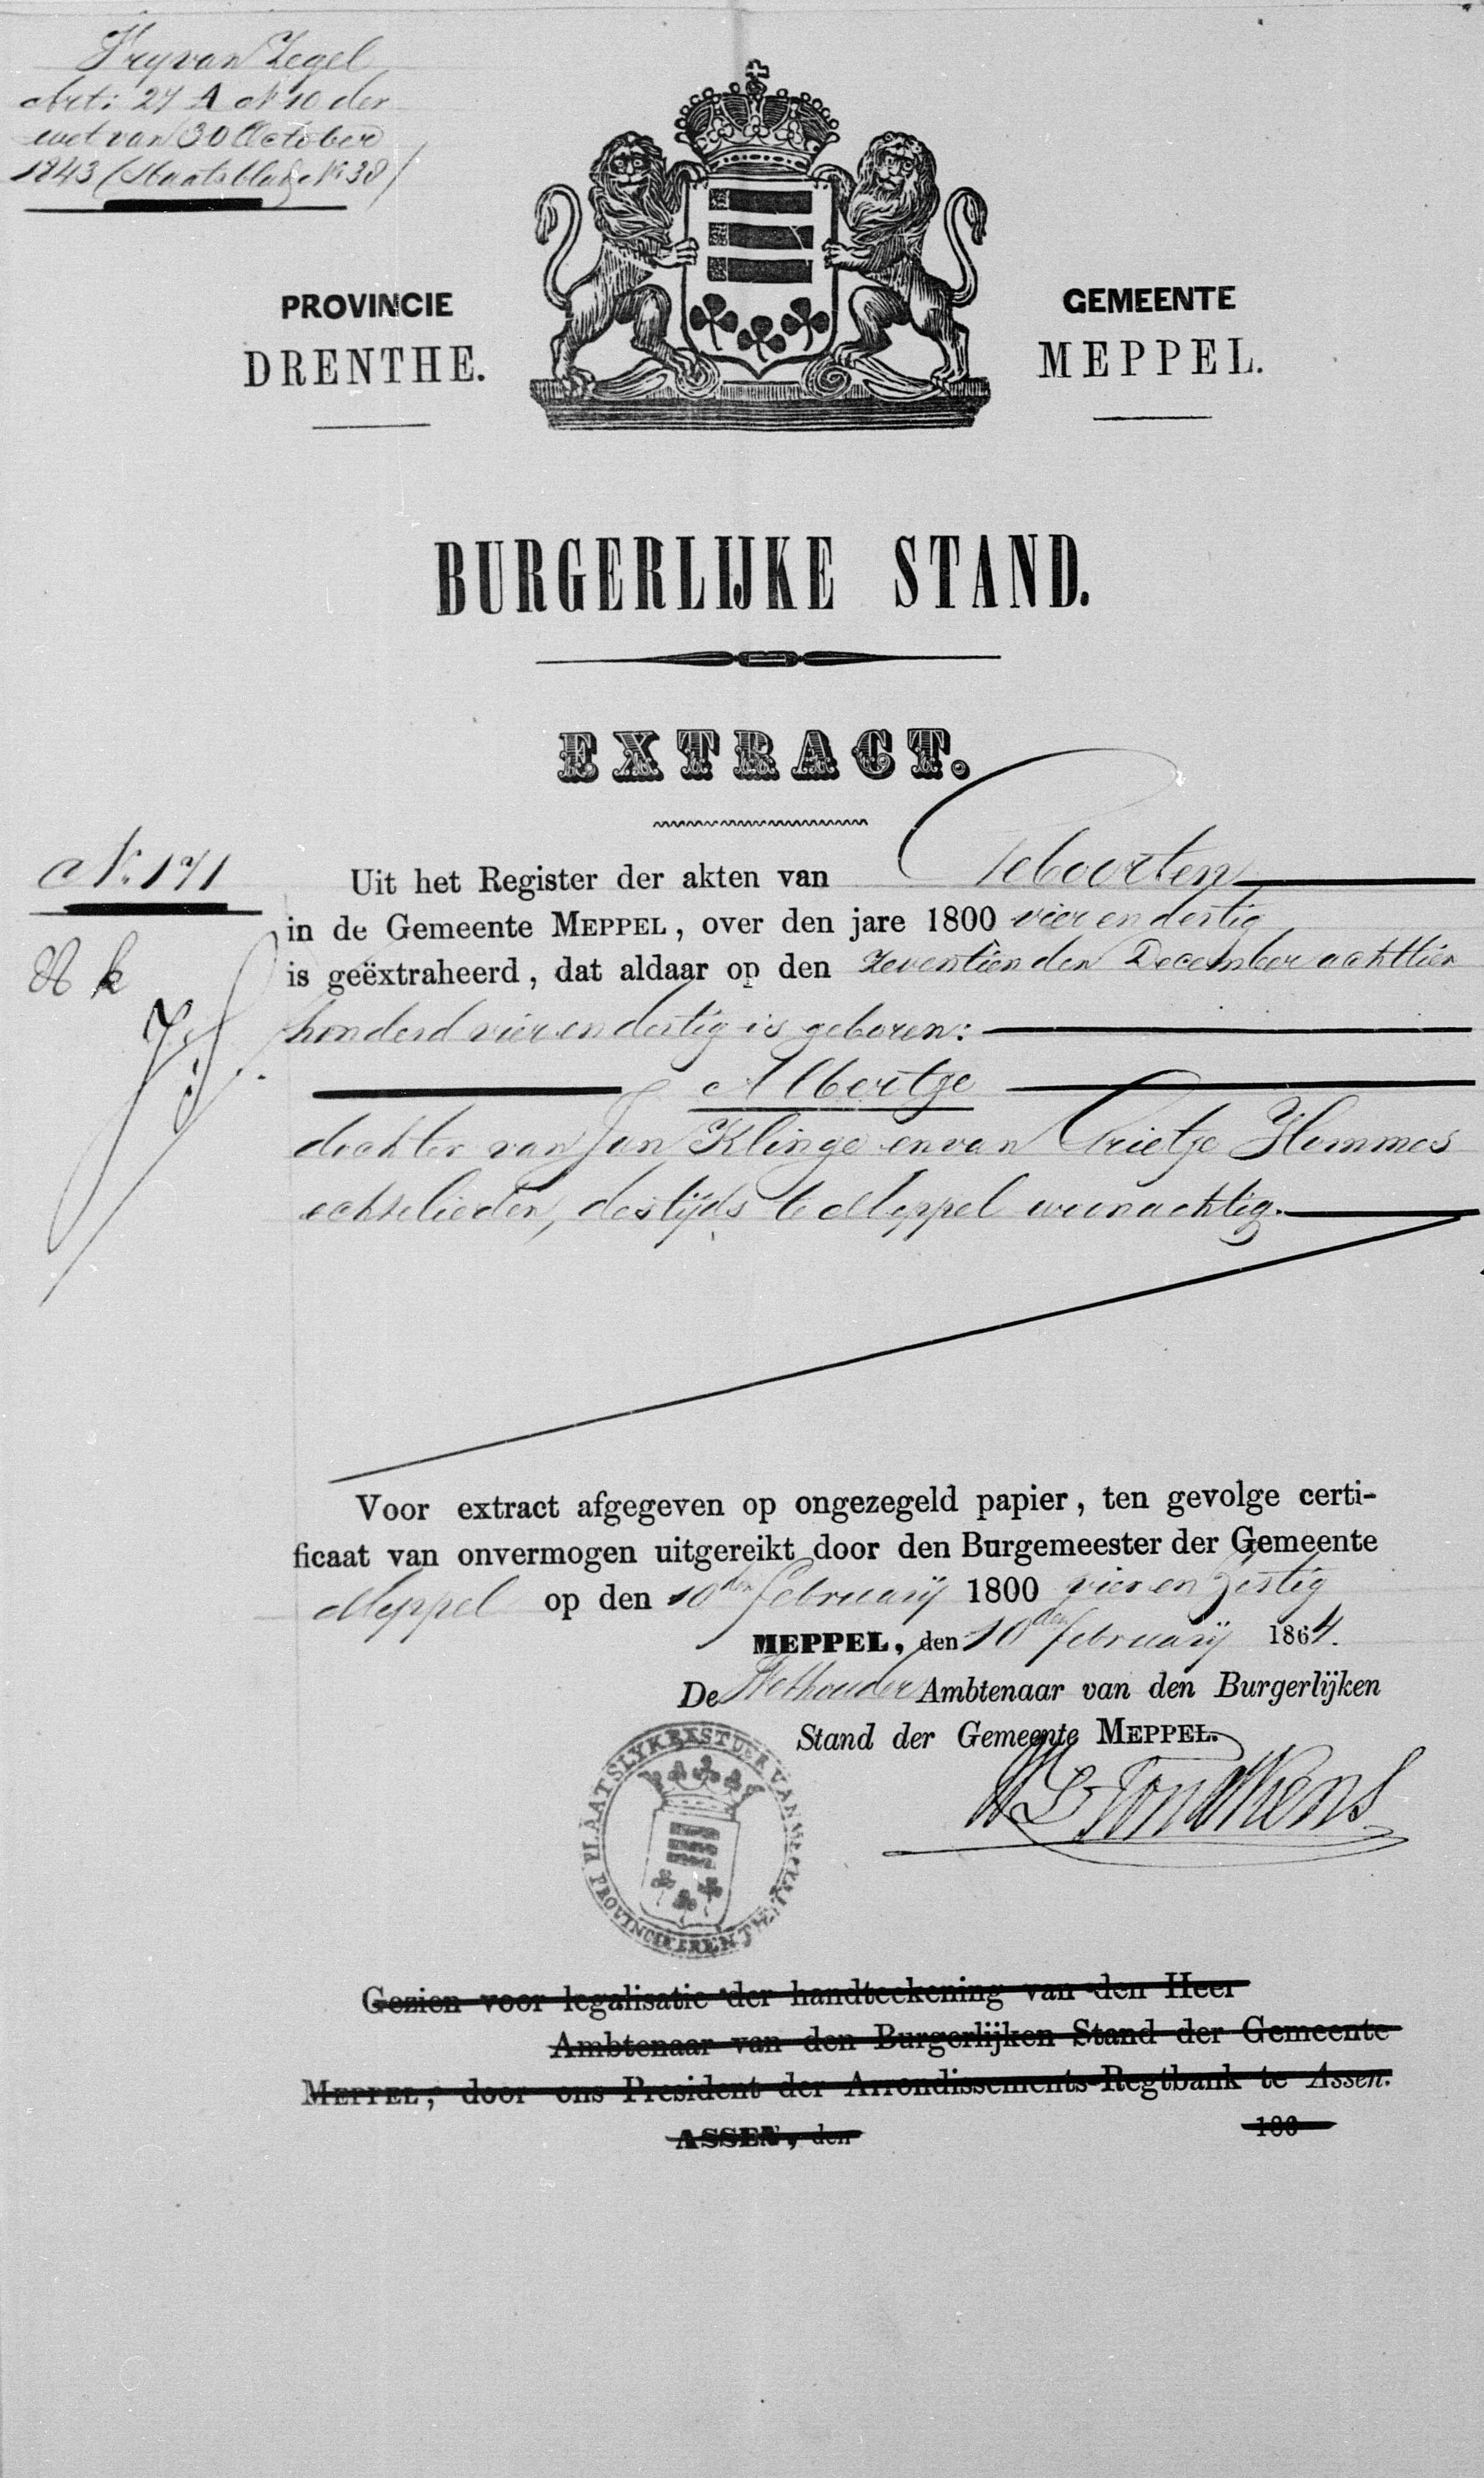 Vry van Zegel
Art: 27 A No 10 der
wet van 30 October
1843 (Staatsblad No 38)
PROVINCIE
DRENTHE.
GEMEENTE
MEPPEL.
BURGERLIJKE STAND.
EXTRACT.
No. 171
Uit het Register der akten van Geboorten
in de Gemeente MEPPEL, over den jare 1800 vier en dertig
is geëxtraheerd, dat aldaar op den zeventienden December achttien
honderd vier en dertig is geboren:
Albertje
dochter van Jan Klinge en van Grietje Hommes
echtelieden, destijds te Meppel woonachtig.
Voor extract afgegeven op ongezegeld papier, ten gevolge certi-
ficaat van onvermogen uitgereikt door den Burgemeester der Gemeente
Meppel op den 10den february 1800 vier en zestig
MEPPEL, den 10den february 1864.
De Wethouder Ambtenaar van den Burgerlijken
Stand der Gemeente MEPPEL.
PLAATSLYK BESTUUR VAN MEPPEL
PROVINCIE DRENTHE
Gezien voor legalisatie der handteekening van den Heer
Ambtenaar van den Burgerlijken Stand der Gemeente
MEPPEL, door ons President der Arrondissements-Regtbank te Assen.
ASSEN, den 186